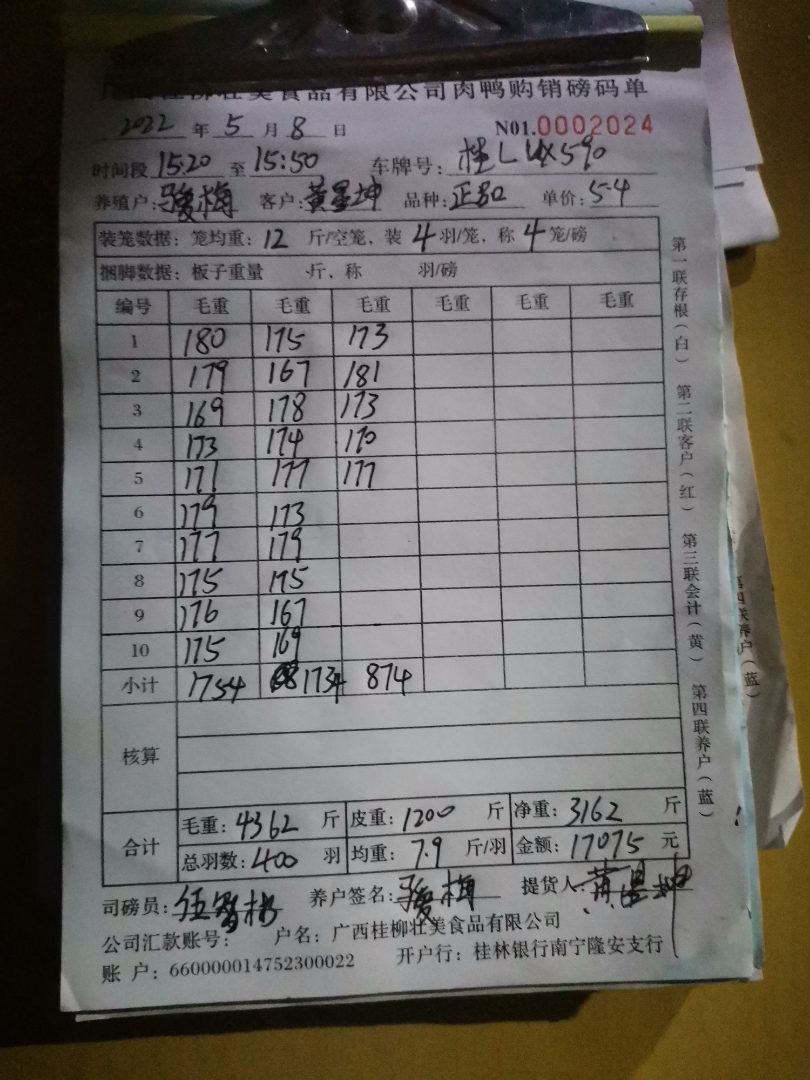 广西桂柳壮美食品有限公司肉鸭购销磅码单
2022 年 5 月 8 日 N01.0002024
时间段 15:20 至 15:50 车牌号: 桂L UX590
养殖户: 骏梅 客户: 黄星坤 品种: 正品 单价: 5.4
装笼数据: 笼均重: 12 斤/空笼, 装 4 羽/笼, 称 4 笼/磅
捆脚数据: 板子重量 斤, 称 羽/磅
编号 毛重 毛重 毛重 毛重 毛重 毛重
1 180 175 173
2 179 167 181
3 169 178 173
4 173 174 170
5 171 177 177
6 179 173
7 177 179
8 175 175
9 176 167
10 175 169
小计 1754 1734 874
核算
合计 毛重: 4362 斤 皮重: 1200 斤 净重: 3162 斤
总羽数: 400 羽 均重: 7.9 斤/羽 金额: 17075 元
司磅员: 养户签名: 骏梅 提货人: 黄星坤
公司汇款账号: 户名: 广西桂柳壮美食品有限公司
账 户: 660000014752300022 开户行: 桂林银行南宁隆安支行
第一联存根(白) 第二联客户(红) 第三联会计(黄) 第四联养户(蓝)